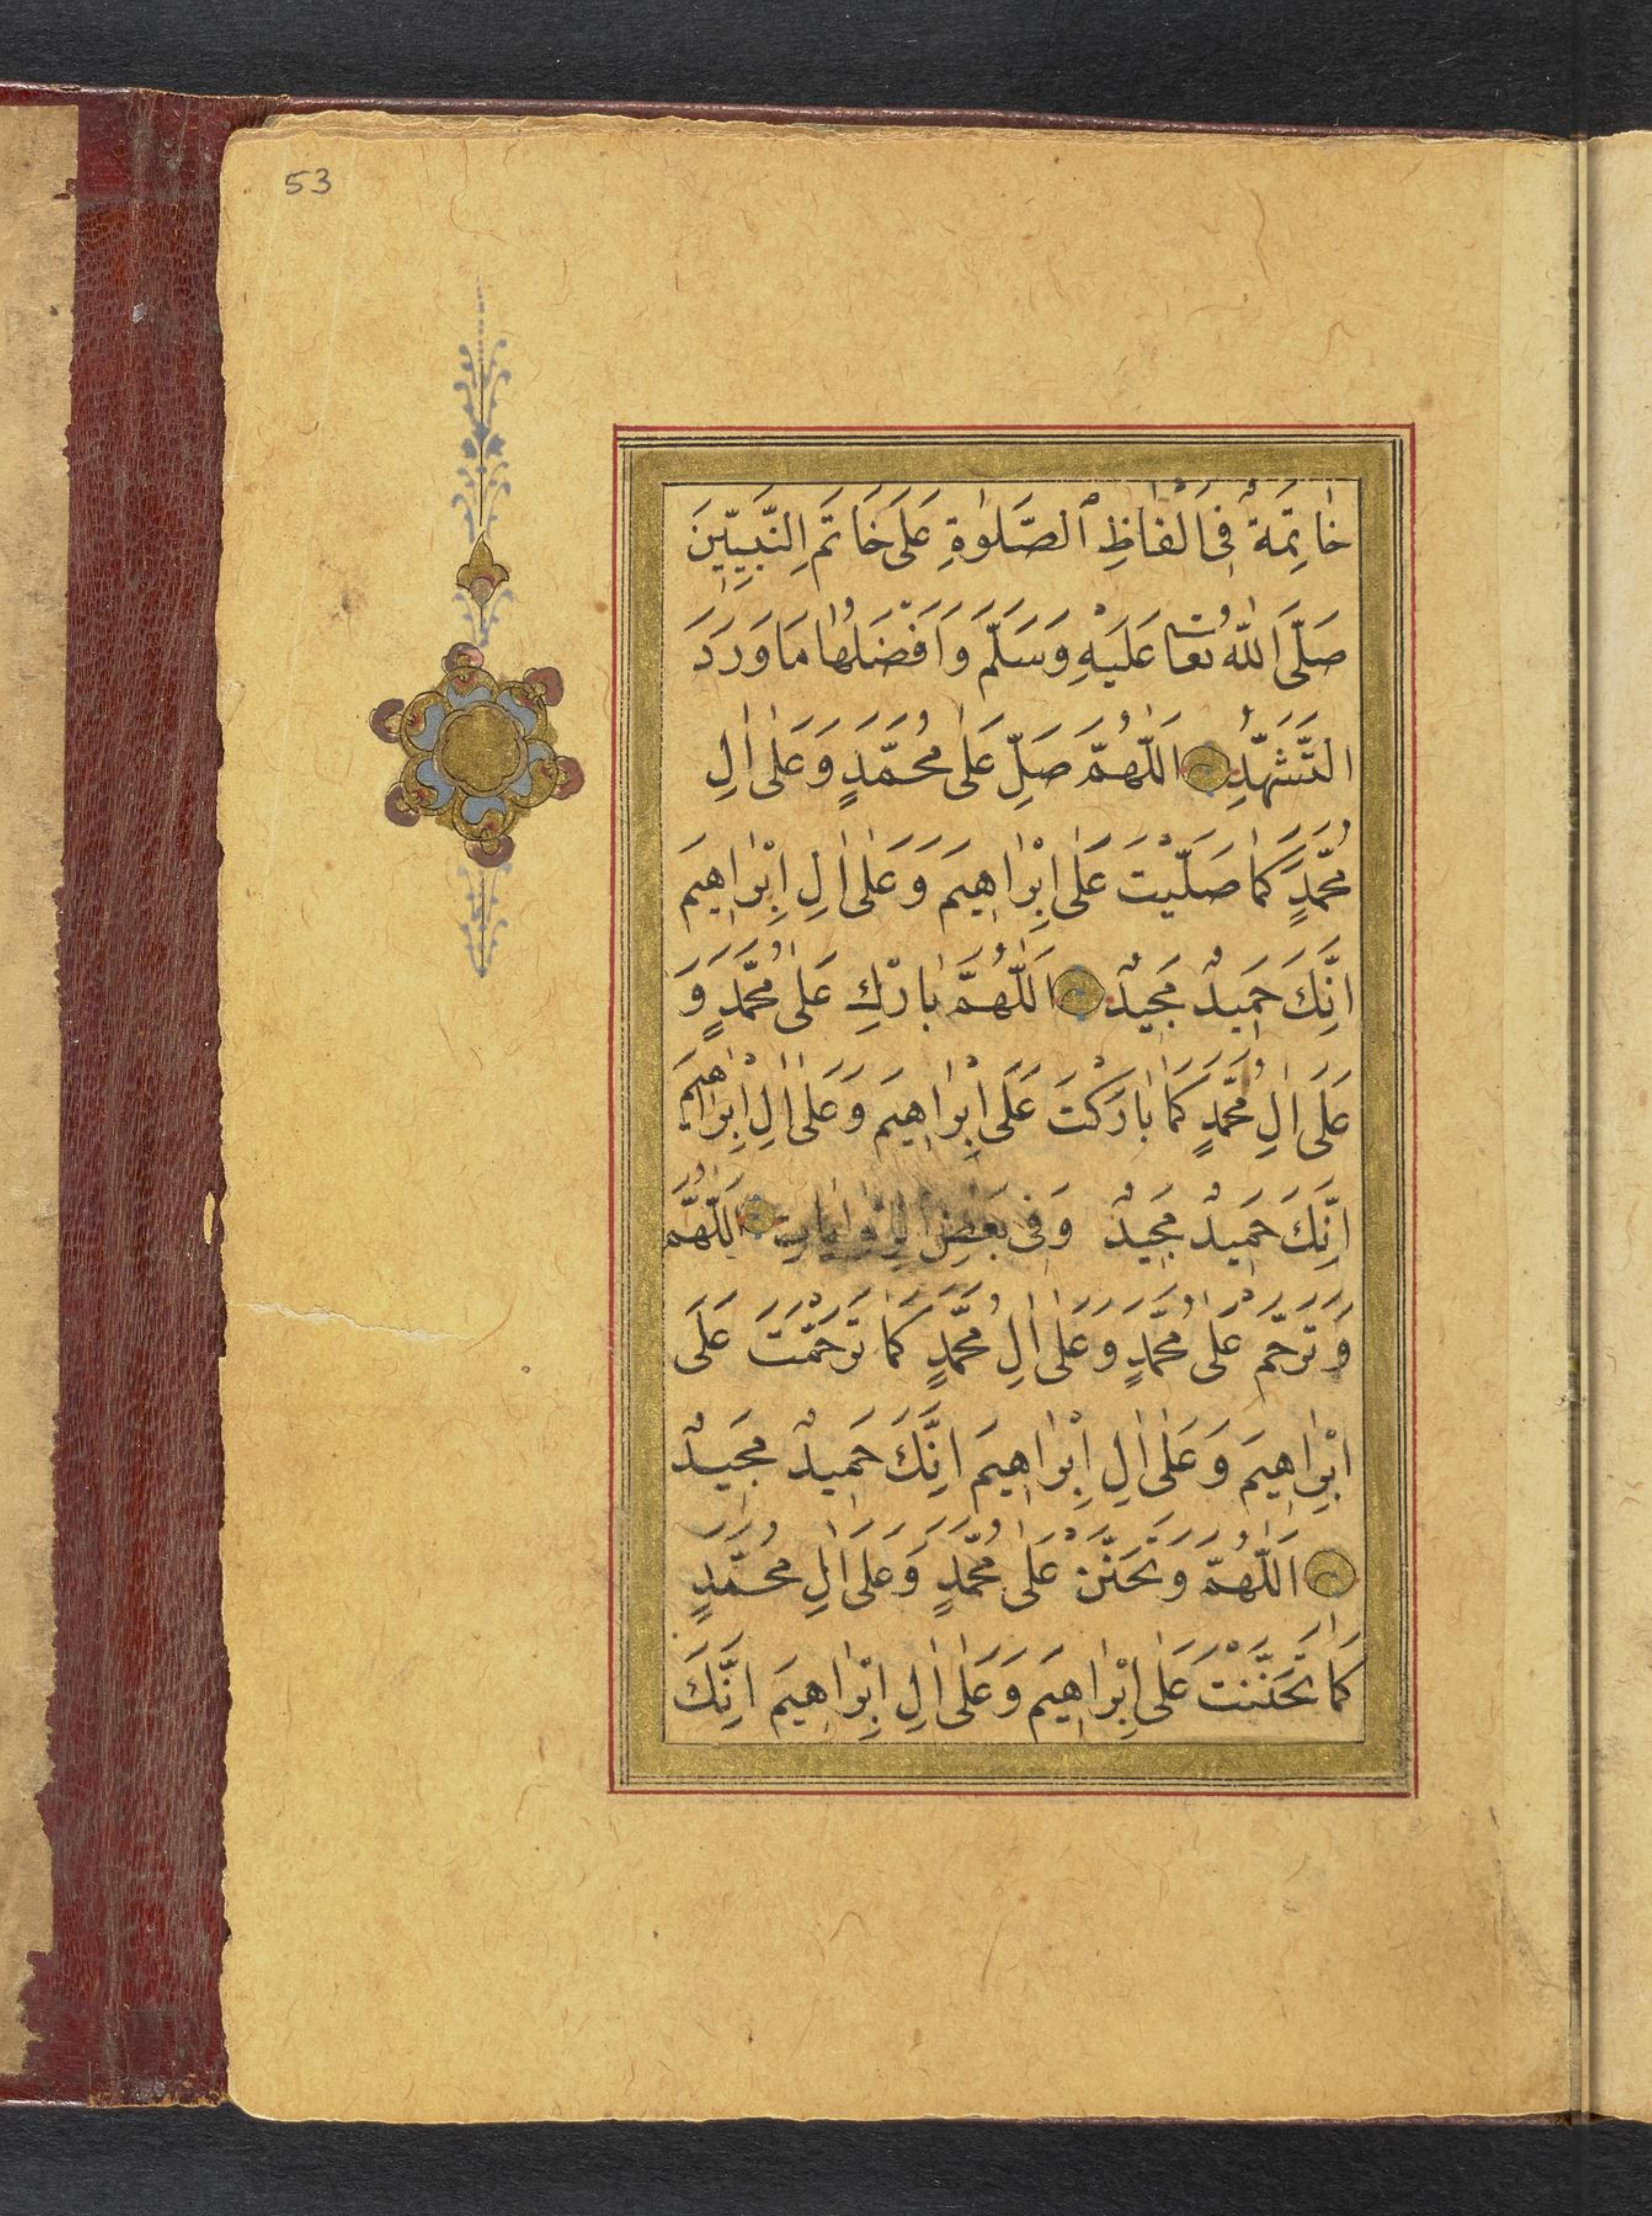 53
خَاتِمَةٌ فِى اَلْفَاظِ الصَّلٰوةِ عَلَى خَاتَمِ النَّبِيِّينَ
صَلَّى اللّٰهُ تَعَا عَلَيْهِ وَسَلَّمَ وَاَفْضَلُهَا مَا وَرَدَ
التَّشَهُّدِ اَللّٰهُمَّ صَلِّ عَلٰى مُحَمَّدٍ وَعَلٰى اٰلِ
مُحَمَّدٍ كَمَا صَلَّيْتَ عَلٰى اِبْرَاهِيمَ وَعَلٰى اٰلِ اِبْرَاهِيمَ
اِنَّكَ حَمِيدٌ مَجِيدٌ اَللّٰهُمَّ بَارِكْ عَلٰى مُحَمَّدٍ وَ
عَلَى اٰلِ مُحَمَّدٍ كَمَا بَارَكْتَ عَلَى اِبْرَاهِيمَ وَعَلٰى اٰلِ اِبْرَاهِيمَ
اِنَّكَ حَمِيدٌ مَجِيدٌ وَفِى بَعْضِ الرِّوَايَاتِ اَللّٰهُمَّ
وَتَرَحَّمْ عَلٰى مُحَمَّدٍ وَعَلٰى اٰلِ مُحَمَّدٍ كَمَا تَرَحَّمْتَ عَلَى
اِبْرَاهِيمَ وَعَلٰى اٰلِ اِبْرَاهِيمَ اِنَّكَ حَمِيدٌ مَجِيدٌ
اَللّٰهُمَّ وَتَحَنَّنْ عَلٰى مُحَمَّدٍ وَعَلٰى اٰلِ مُحَمَّدٍ
كَمَا تَحَنَّنْتَ عَلٰى اِبْرَاهِيمَ وَعَلٰى اٰلِ اِبْرَاهِيمَ اِنَّكَ